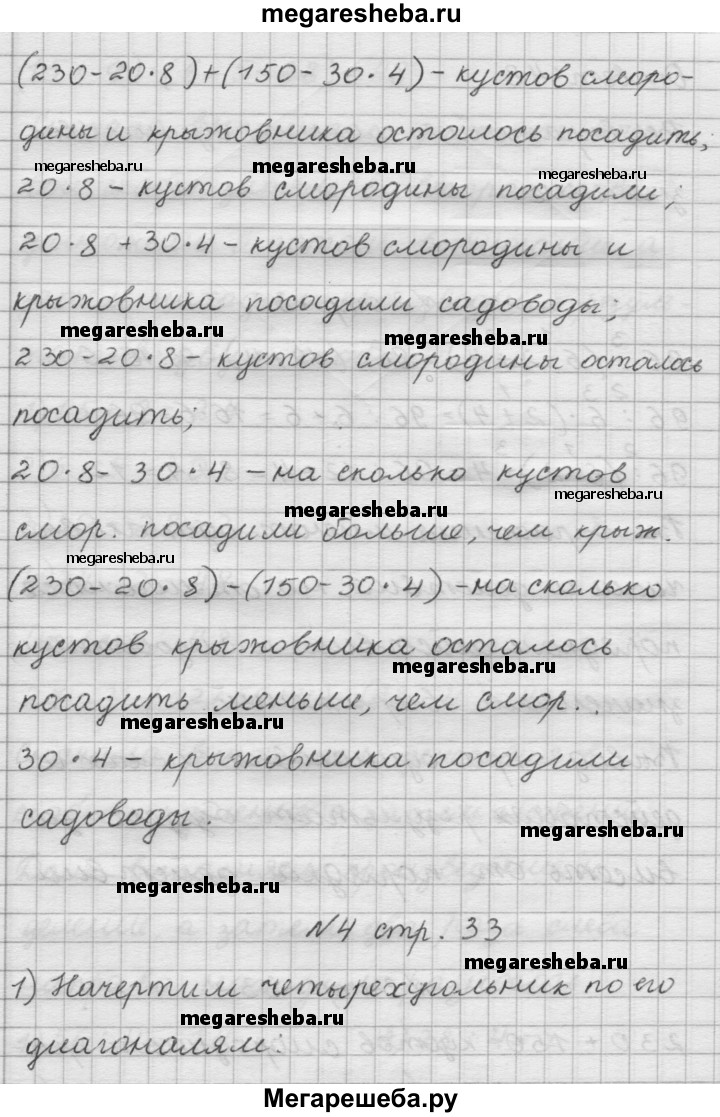 megaresheba.ru
(230-20·8)+(150-30·4) - кустов сморо-
дины и крыжовника осталось посадить,
megaresheba.ru megaresheba.ru megaresheba.ru
20·8 - кустов смородины посадили;
20·8 + 30·4 - кустов смородины и
крыжовника посадили садоводы;
megaresheba.ru megaresheba.ru
230-20·8 - кустов смородины осталось
посадить,
20·8 - 30·4 - на сколько кустов
megaresheba.ru megaresheba.ru
смор. посадили больше, чем крыж.
megaresheba.ru
(230-20·8)-(150-30·4) - на сколько
кустов крыжовника осталось
megaresheba.ru
посадить меньше, чем смор.
megaresheba.ru
30·4 - крыжовника посадили
садоводы.
megaresheba.ru
megaresheba.ru
№4 стр. 33
megaresheba.ru
1) Начертим четырехугольник по его
megaresheba.ru
диагоналям:
Мегарешеба.ру